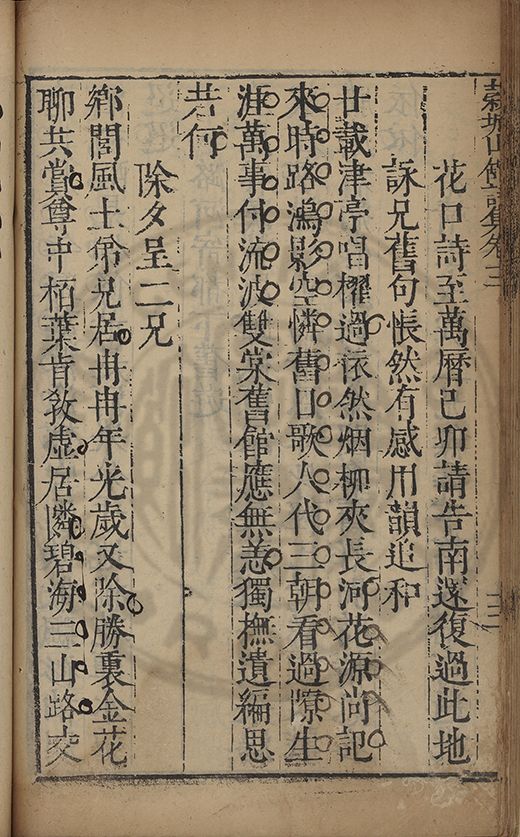 蒙城山館詩集卷三
花口詩至萬曆己卯請告南還復過此地
詠兄舊句悵然有感用韻追和
廿載津亭唱櫂過依然烟柳夾長河花源尚記
來時路鴻影空憐舊日歌人代三朝看過隙生
涯萬事付流波雙棠舊館應無恙獨撫遺編思
若何
除夕呈二兄
鄉閭風土弟兄居冉冉年光歲又除勝裏金花
聊共賞尊中栢葉肯教虛居隣碧海三山路交